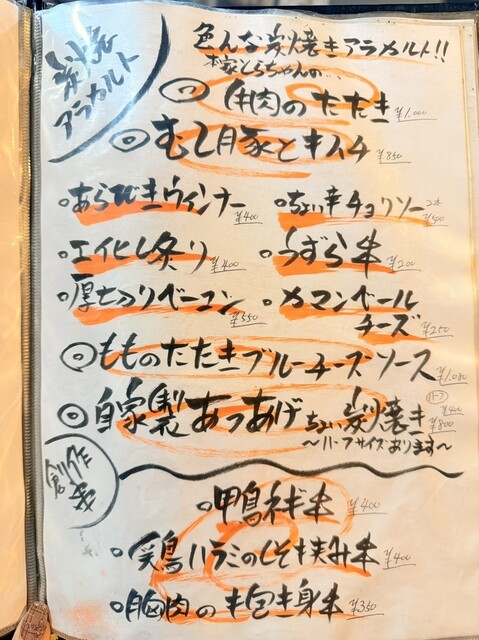 炭焼
アラカルト
色んな炭焼きアラカルト!!
本家とらちゃんの…
肉のたたき ¥1.000
むし豚とキムチ ¥850
あらびきウィンナー ¥400
ちょい辛チョリソー 2本 ¥500
エイヒレ炙り ¥400
うずら串 ¥200
厚切りベーコン ¥550
カマンベールチーズ ¥250
もものたたきブルーチーズソース ¥1.080
自家製あつあげちょい炭焼き ハーフ ¥400 ¥800
〜ハーフサイズあります〜
創作串
鴨ネギ串 ¥400
鶏ハラミのしそ挟み串 ¥400
胸肉の包き身串 ¥350